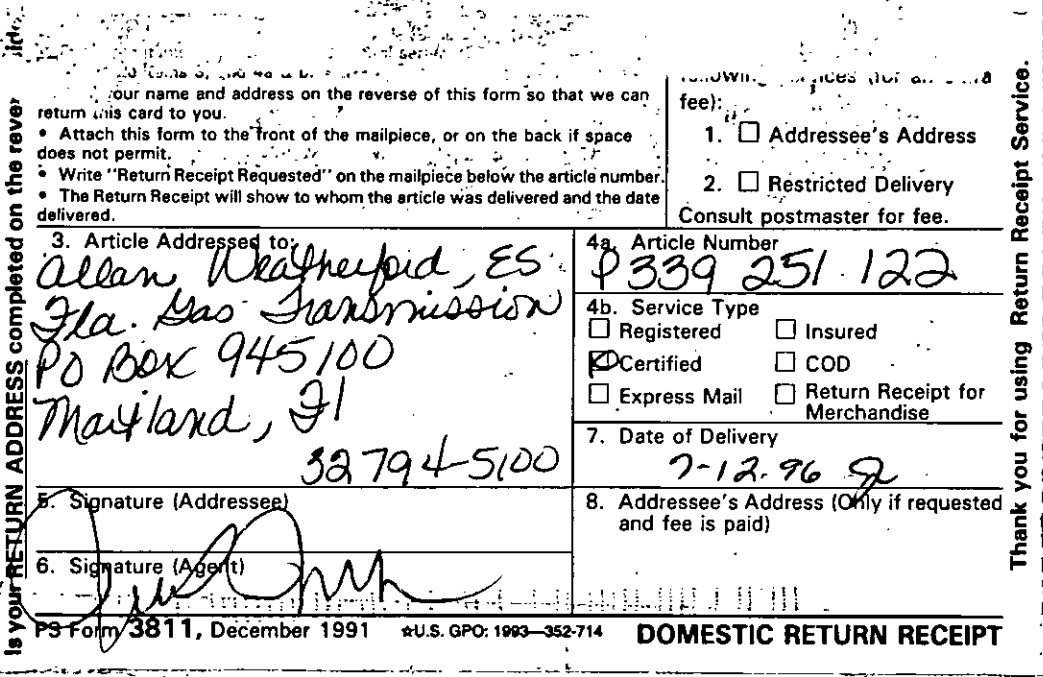 your name and address on the reverse of this form so that we can
return this card to you.
• Attach this form to the front of the mailpiece, or on the back if space
does not permit.
• Write "Return Receipt Requested" on the mailpiece below the article number.
• The Return Receipt will show to whom the article was delivered and the date
delivered.
fee):
1. ☐ Addressee's Address
2. ☐ Restricted Delivery
Consult postmaster for fee.
3. Article Addressed to:
Allan Weatherford, ES
Fla. Gas Transmission
PO Box 945100
Maitland, Fl
32794-5100
4a. Article Number
P339 251 122
4b. Service Type
☐ Registered ☐ Insured
☑ Certified ☐ COD
☐ Express Mail ☐ Return Receipt for
Merchandise
7. Date of Delivery
7-12-96
5. Signature (Addressee)
8. Addressee's Address (Only if requested
and fee is paid)
6. Signature (Agent)
PS Form 3811, December 1991 ☆U.S. GPO: 1993—352-714 DOMESTIC RETURN RECEIPT
Is your RETURN ADDRESS completed on the reverse
Thank you for using Return Receipt Service.